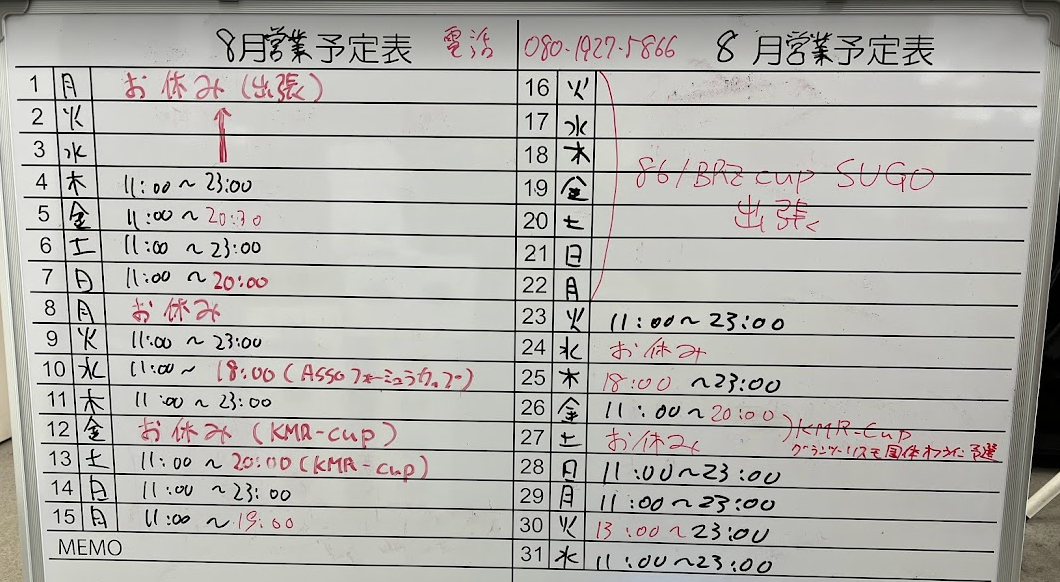 8月営業予定表 電話 080-1927-5866 8月営業予定表
1 月 お休み(出張)
2 火
3 水
4 木 11:00~23:00
5 金 11:00~20:30
6 土 11:00~23:00
7 日 11:00~20:00
8 月 お休み
9 火 11:00~23:00
10 水 11:00~18:00(Assoフォーミュラカップ)
11 木 11:00~23:00
12 金 お休み(KMR-cup)
13 土 11:00~20:00(KMR-cup)
14 日 11:00~23:00
15 月 11:00~19:00
MEMO
16 火
17 水
18 木
86/BRZ cup SUGO
19 金
出張
20 土
21 日
22 月
23 火 11:00~23:00
24 水 お休み
25 木 18:00~23:00
26 金 11:00~20:00
KMR-Cup
27 土 お休み
グランツーリスモ国体オフライン予選
28 日 11:00~23:00
29 月 11:00~23:00
30 火 13:00~23:00
31 水 11:00~23:00